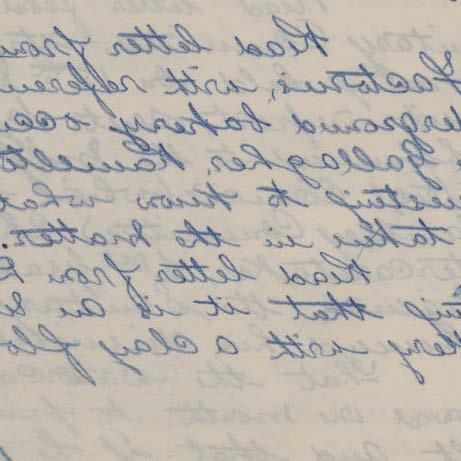 Read letter from
Factories, with referen
erground bakery occu
Gallagher, Hamilto
uesting to know what
taken in the matter.
Read letter from
ing that it is an
kery with a clay flo